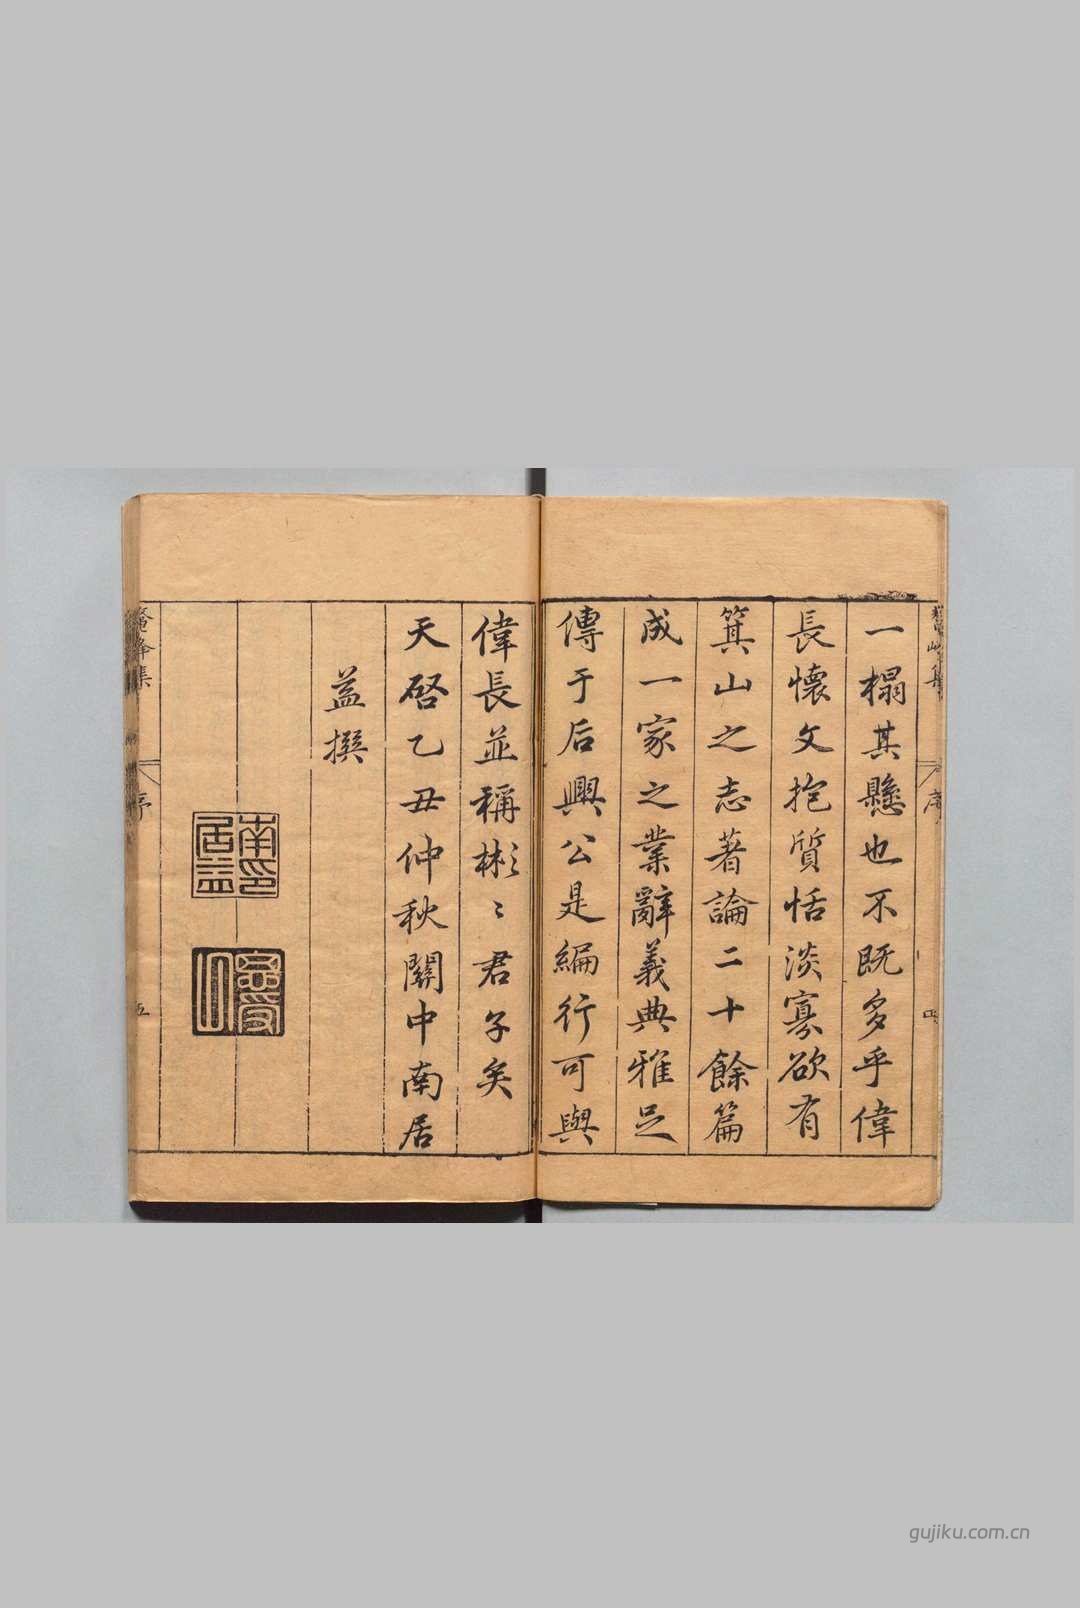 一榻其懸也不既多乎偉
長懷文抱質恬淡寡欲有
箕山之志著論二十餘篇
成一家之業辭義典雅足
傳于后興公是編行可與
偉長並稱彬〻君子矣
天啓乙丑仲秋關中南居
益撰
南居益印
鼇峰集
序
五
序
四
gujiku.com.cn